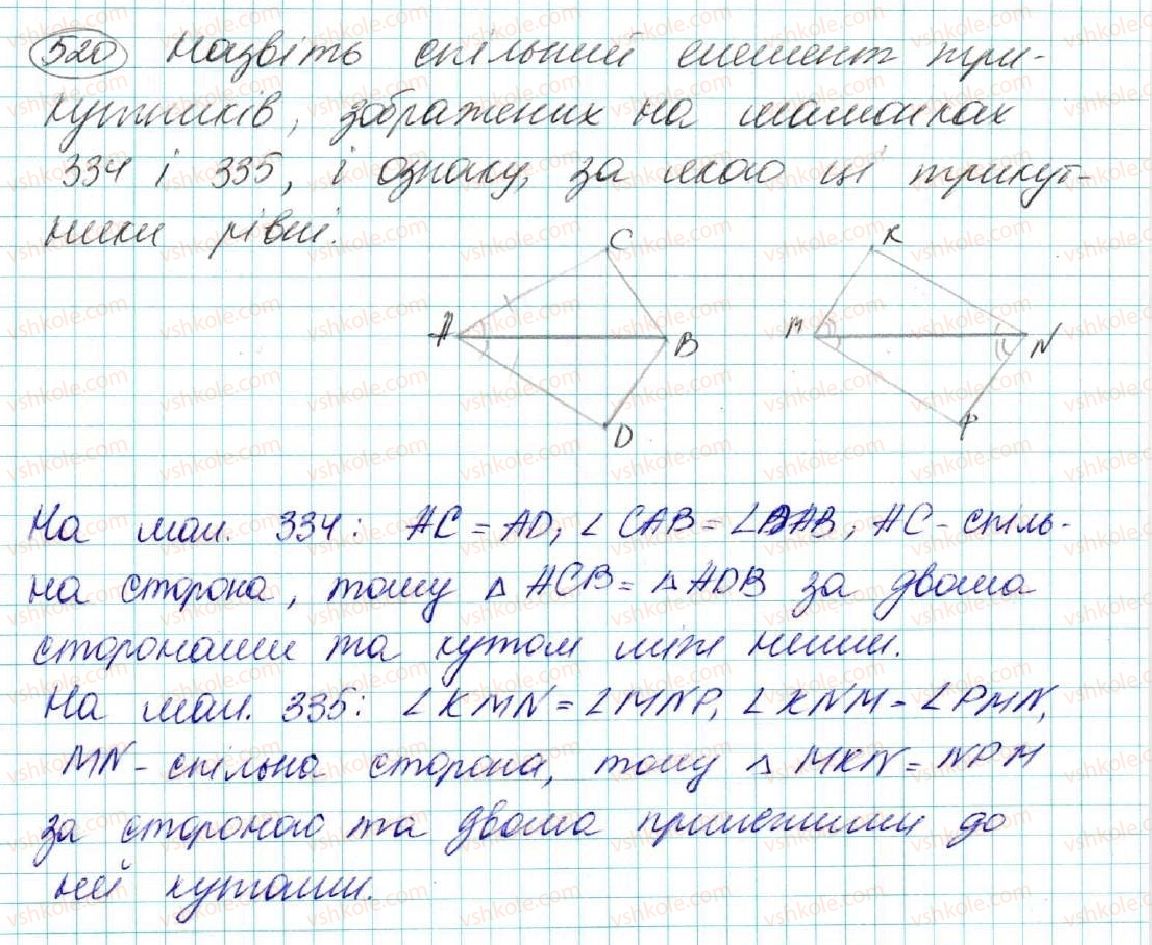 520 Назвіть спільний елемент три-
кутників, зображених на малюнках
334 і 335, і ознаку, за якою ці трикут-
ники рівні.
C
K
A
B
M
N
D
P
На мал. 334: AC = AD, ∠ CAB = ∠DAB, AC - спіль-
на сторона, тому △ ACB = △ ADB за двома
сторонами та кутом між ними.
На мал. 335: ∠KMN = ∠MNP, ∠KNM = ∠PMN,
MN - спільна сторона, тому △ MKN = NPM
за стороною та двома прилеглими до
неї кутами.
vshkole.com